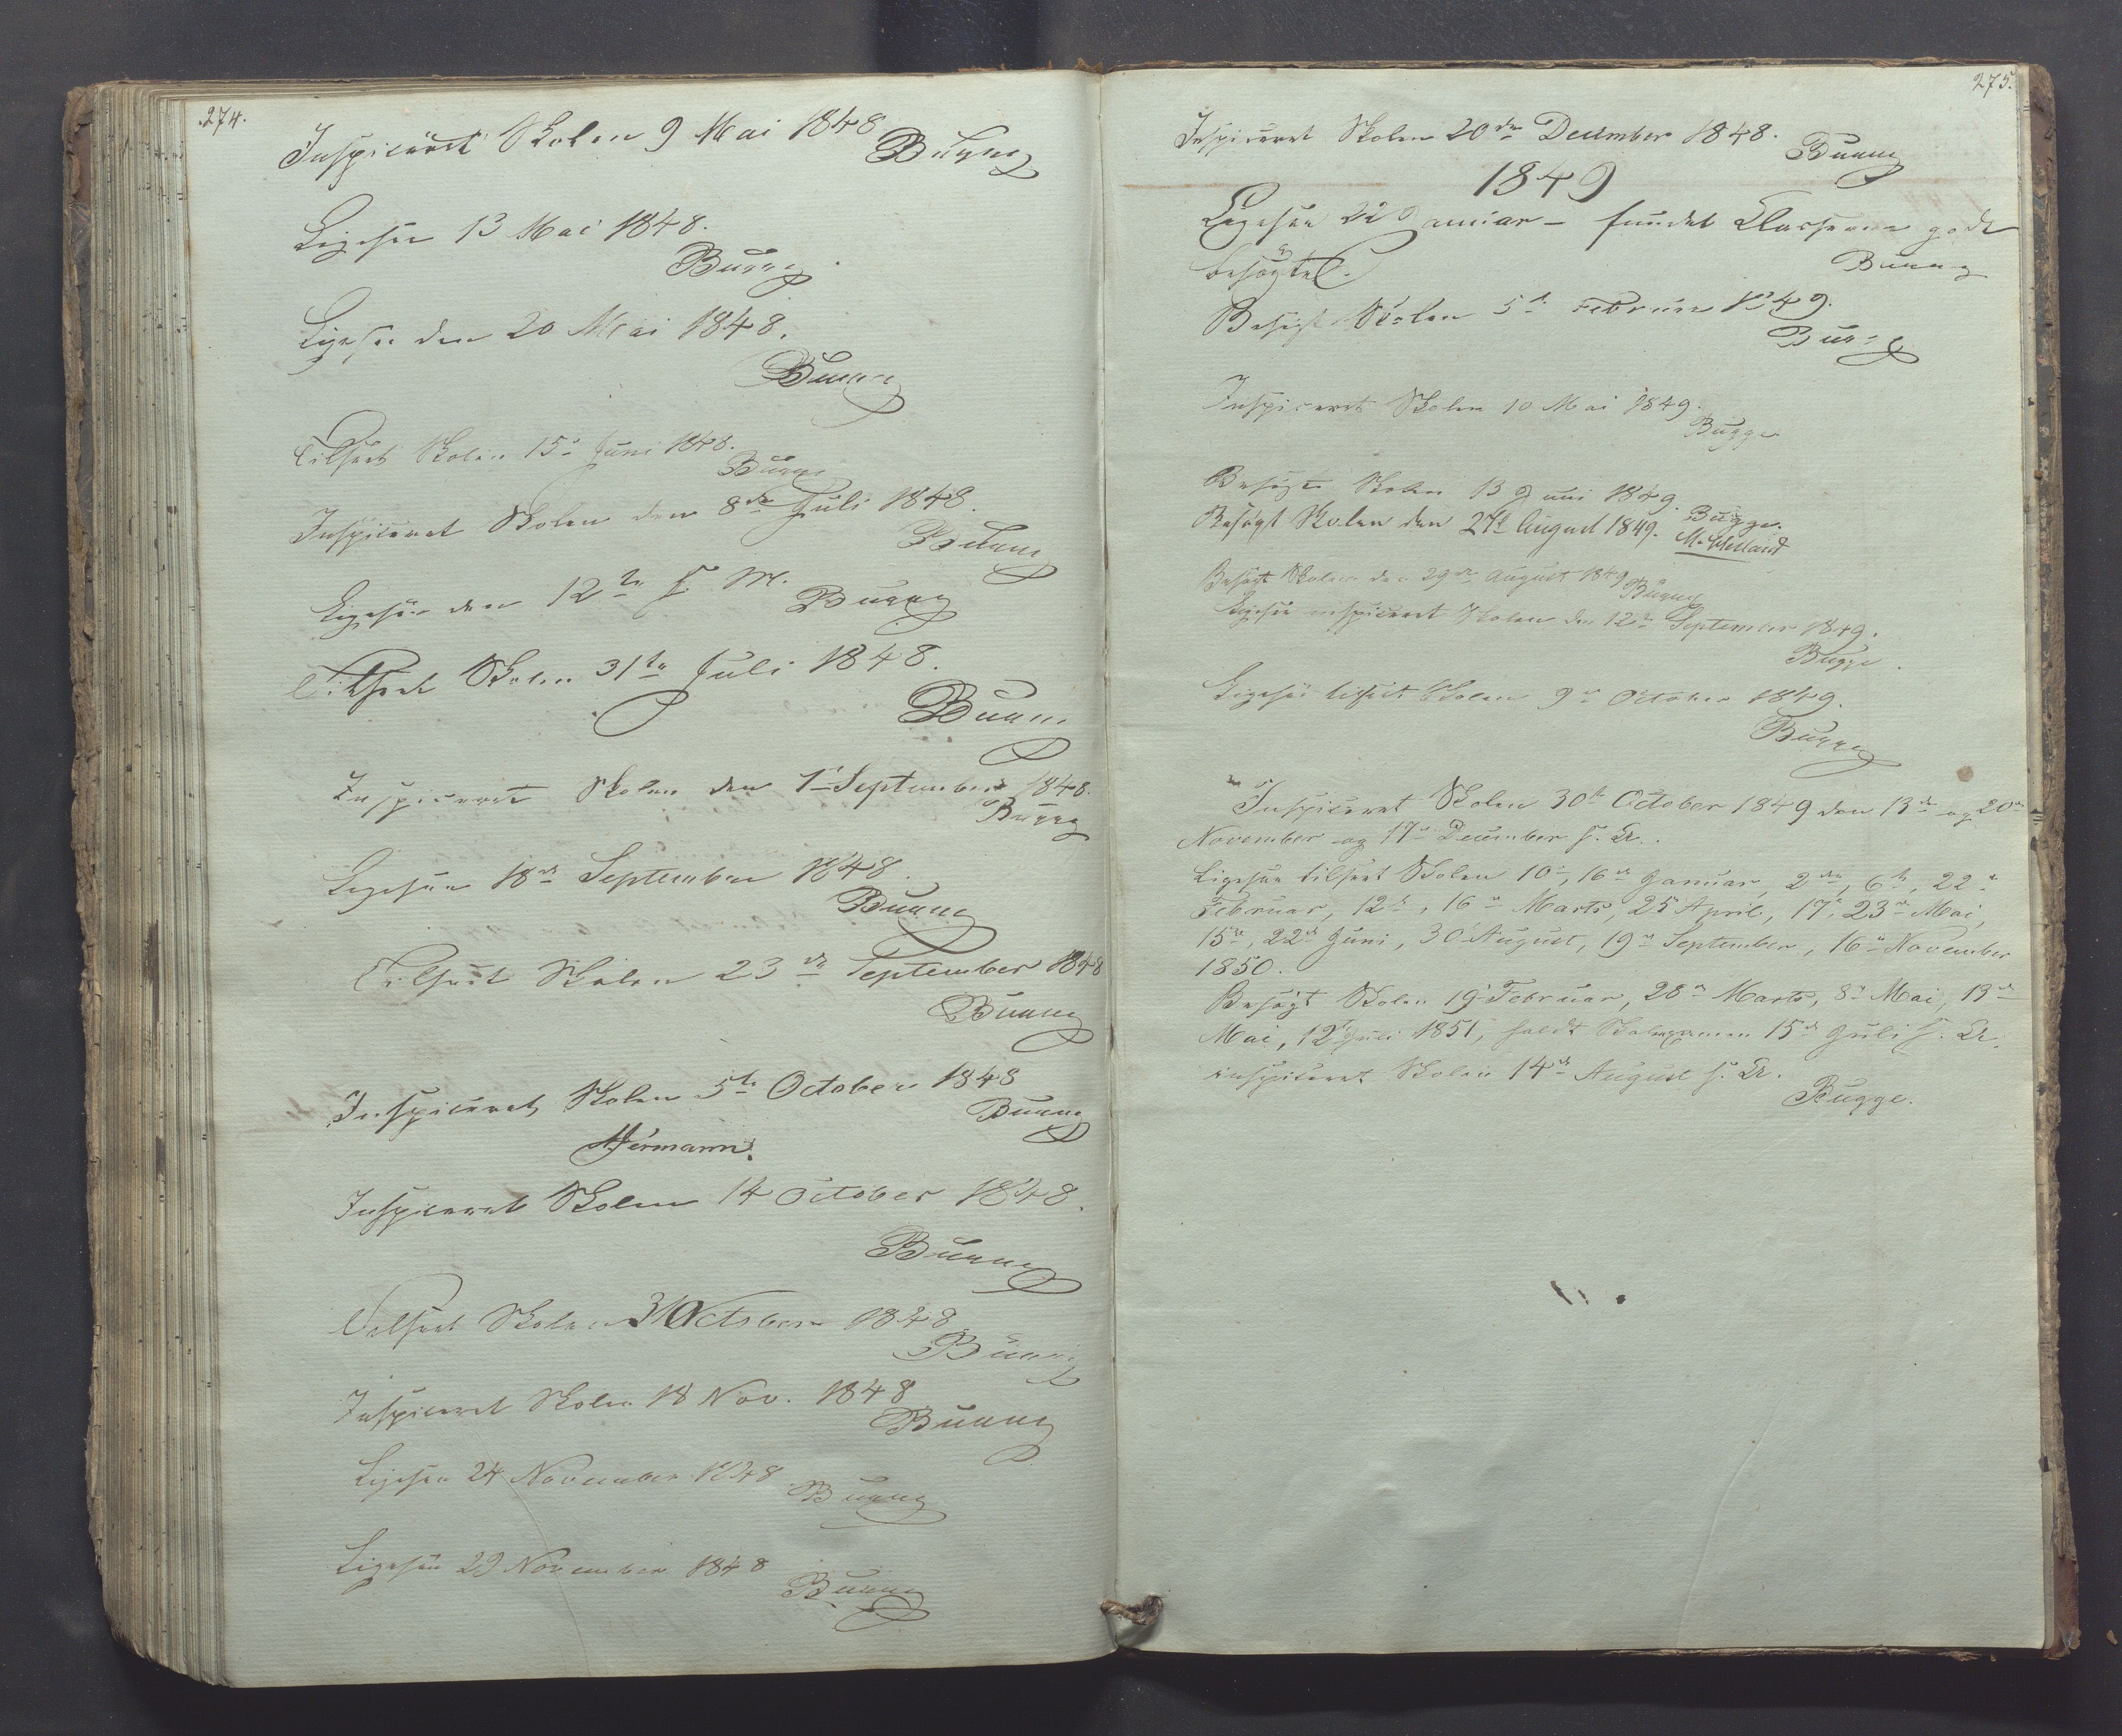 274.
Inspiceret Skolen 9 Mai 1848
Bugge
Ligesaa 13 Mai 1848.
Bugge
Ligesaa den 20 Mai 1848.
Bugge
Tilseet Skolen 15de Juni 1848.
Bugge
Inspiceret Skolen den 8de Juli 1848.
Bugge
Ligesaa den 12te s. M.
Bugge
Tilseet Skolen 31te Juli 1848.
Bugge
Inspiceret Skolen den 1ste September 1848.
Bugge
Ligesaa 18de September 1848.
Bugge
Tilseet Skolen 23de September 1848
Bugge
Inspiceret Skolen 5te October 1848
Bugge
Hermann.
Inspiceret Skolen 14 October 1848.
Bugge
Tilseet Skolen 31 October 1848
Bugge
Inspiceret Skolen 18 Nov. 1848
Bugge
Ligesaa 24 November 1848
Bugge
Ligesaa 29 November 1848
Bugge
275.
Inspiceret Skolen 20de December 1848.
Bugge
1849
Ligesaa 22 Januar – fundet Classerne godt
besøgte.
Bugge
Besøgt Skolen 5te Februar 1849.
Bugge
Inspiceret Skolen 10 Mai 1849.
Bugge
Besøgt Skolen 13 Juni 1849.
Bugge.
Besøgt Skolen den 27de August 1849. M. Kielland
Besøgt Skolen den 29de August 1849
Bugge
Ligesaa inspiceret Skolen den 12te September 1849.
Bugge.
Ligesaa tilseet Skolen 9de October 1849.
Bugge
Inspiceret Skolen 30te October 1849 den 13de og 20de
November og 17de December s. A.
Ligesaa tilseet Skolen 10de, 16de Januar, 2den, 6te, 22de
Februar, 12te, 16de Marts, 25 April, 17de, 23de Mai,
15de, 22de Juni, 30 August, 19de September, 16de November
1850.
Besøgt Skolen 19de Februar, 28de Marts, 8de Mai, 13de
Mai, 12te Juli 1851, holdt Skoleexamen 15de Juli s. A.
inspiceret Skolen 14de August s. A.
Bugge.